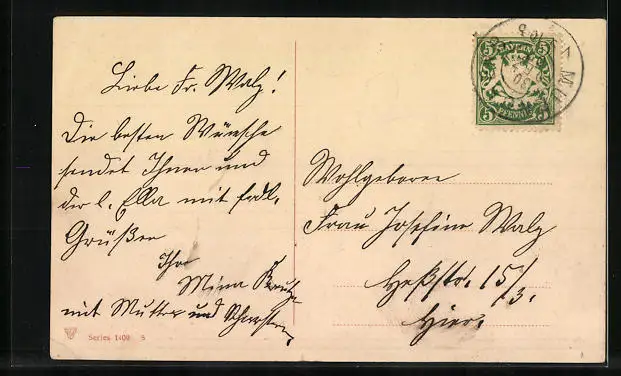 Liebe Fr. Walz!
Die besten Wünsche
sendet Ihnen und
der l. Ella mit frdl.
Grüßen
Ihre
Mina
mit Mutter und
Series 1409 S
5 BAYERN 5
5 PFENNIG 5
Wohlgeboren
Frau Josefine Walz
Heßstr. 15/3.
Hier.